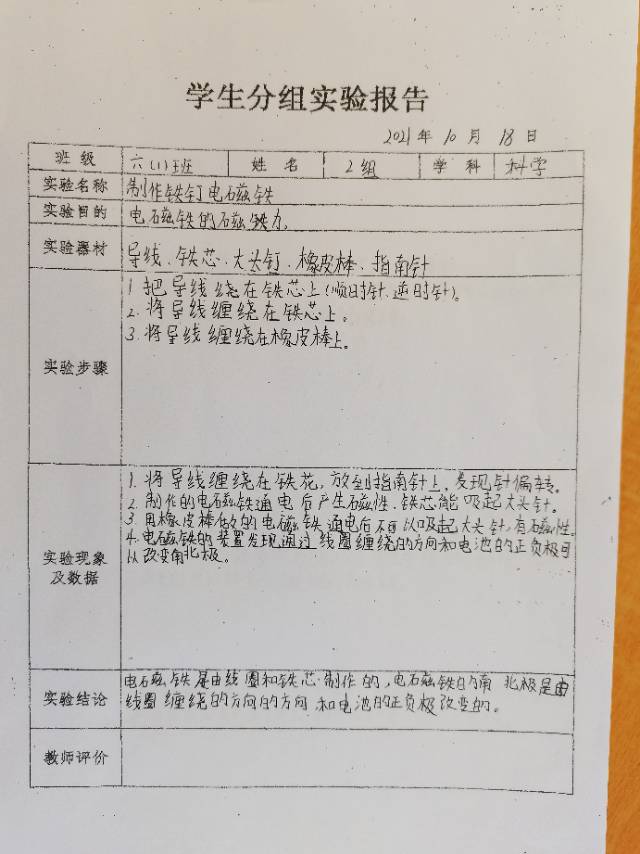 学生分组实验报告
2021年10月18日
班级 六(1)班 姓名 2组 学科 科学
实验名称 制作铁钉电磁铁
实验目的 电磁铁的磁铁力。
实验器材 导线、铁芯、大头钉、橡皮棒、指南针
实验步骤
1. 把导线绕在铁芯上(顺时针、逆时针)。
2. 将导线缠绕在铁芯上。
3. 将导线缠绕在橡皮棒上。
实验现象及数据
1. 将导线缠绕在铁芯，放到指南针上，发现针偏转。
2. 制作的电磁铁通电后产生磁性，铁芯能吸起大头针。
3. 用橡皮棒做的电磁铁通电后不可以吸起大头针，有磁性。
4. 电磁铁的装置发现通过线圈缠绕的方向和电池的正负极可
以改变南北极。
实验结论 电磁铁是由线圈和铁芯制作的，电磁铁的南北极是由
线圈缠绕的方向的方向和电池的正负极改变的。
教师评价